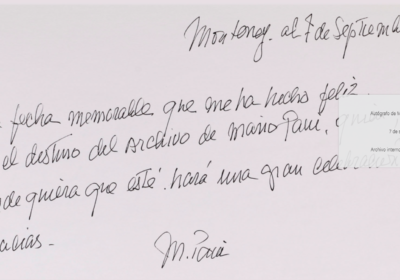 Monterrey. al 7 de Septiemb
fecha memorable que me ha hecho feliz
el destino del Archivo de Mario Pani,
de quiera que esté. hará una gran
acias.
M. Pani
Autógrafo de M
7 de s
Archivo Intern